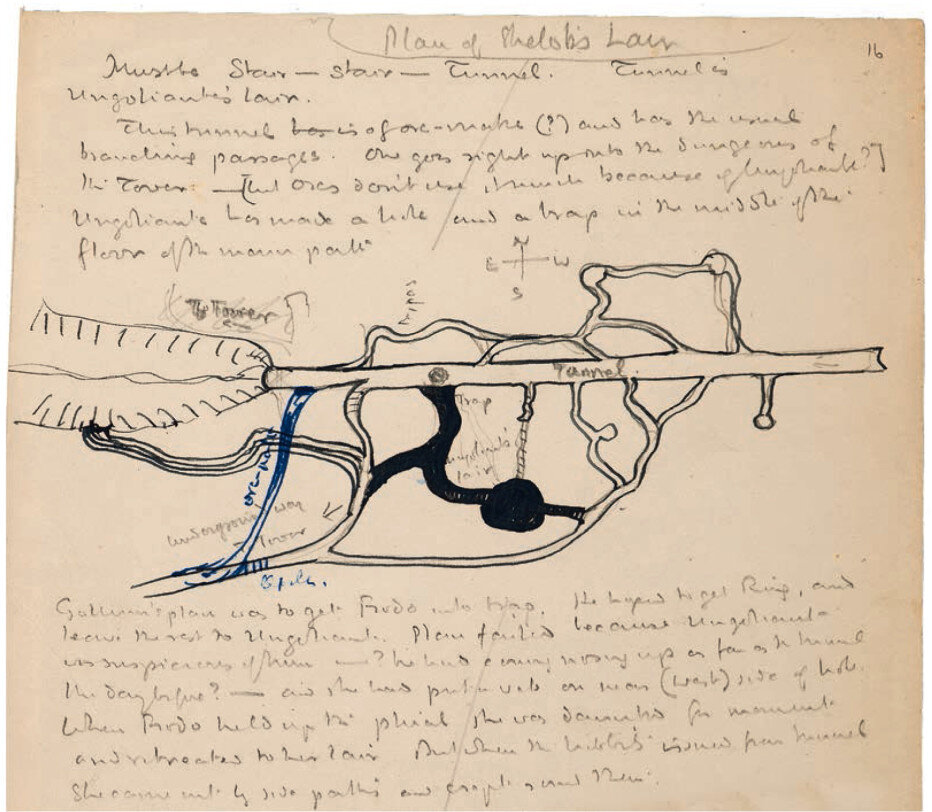 Plan of Shelob's Lair
16
Must be Stair — Stair — Tunnel. Tunnel is
Ungoliante's lair.
This tunnel is of orc-make (?) and has the usual
branching passages. One goes right up into the dungeons of
the Tower — [but orcs don't use it much because of Ungoliante?]
Ungoliante has made a hole and a trap in the middle of the
floor of the main path
N
E W
S
To Tower
Tunnel
Trap
Ungoliante's
lair
orc-
underground way
to Tower
Gollum's plan was to get Frodo into trap. He hoped to get Ring, and
leave the rest to Ungoliante. Plan failed because Ungoliante
was suspicious of him — ? he had coming nosing up as far as the tunnel
the day before? — and she had put web on near (west) side of hole.
When Frodo held up the phial she was daunted for moment
and retreated to her lair. But when the hobbits issued from tunnel
she came out by side paths and crept round them.